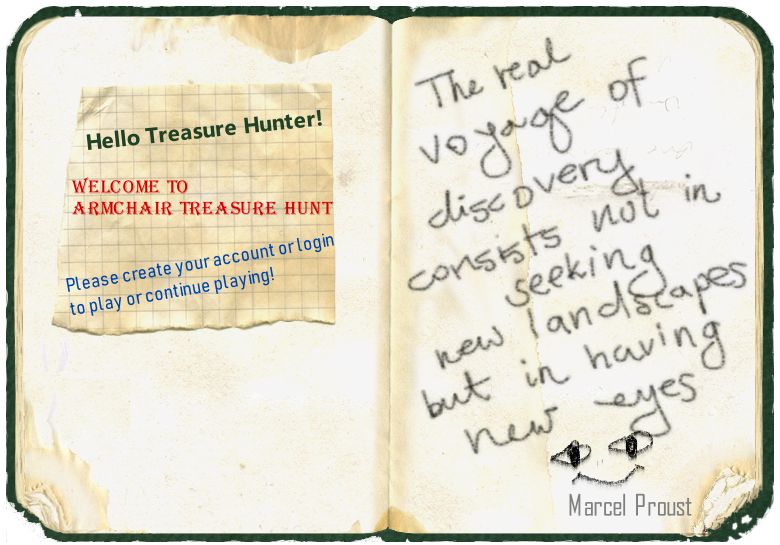 Hello Treasure Hunter!
WELCOME TO
ARMCHAIR TREASURE HUNT
Please create your account or login
to play or continue playing!
The real
voyage of
discovery
consists not in
seeking
new landscapes
but in having
new eyes
Marcel Proust